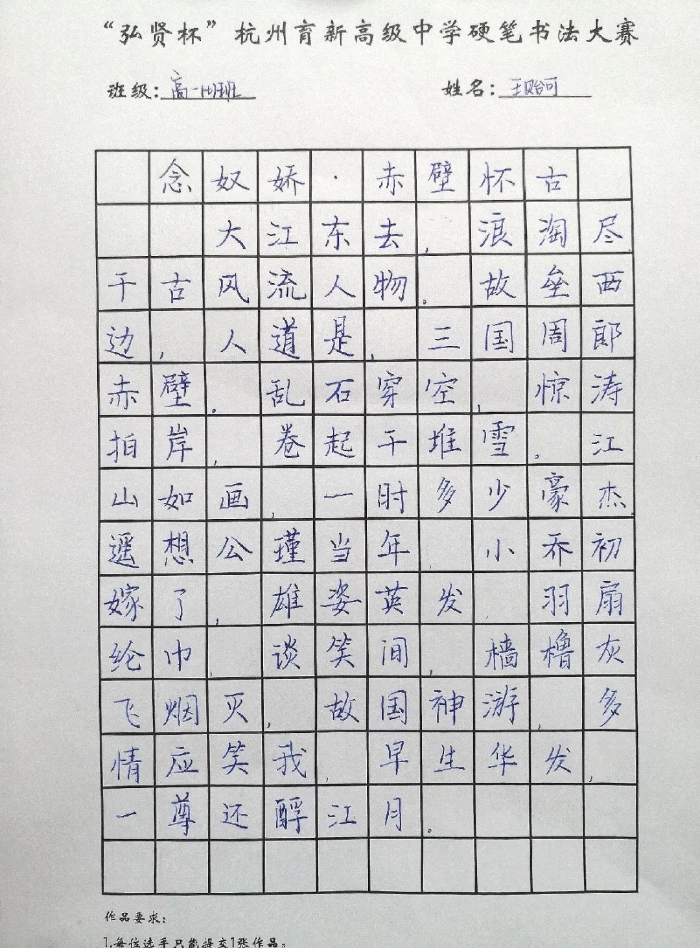 “弘贤杯”杭州育新高级中学硬笔书法大赛
班级：高一(1)班 姓名：王贻可
念奴娇·赤壁怀古
大江东去，浪淘尽
千古风流人物。故垒西
边，人道是，三国周郎
赤壁。乱石穿空，惊涛
拍岸，卷起千堆雪。江
山如画，一时多少豪杰.
遥想公瑾当年，小乔初
嫁了，雄姿英发，羽扇
纶巾，谈笑间，樯橹灰
飞烟灭，故国神游，多
情应笑我，早生华发，
一尊还酹江月。
作品要求：
1.每位选手只能提交1张作品。